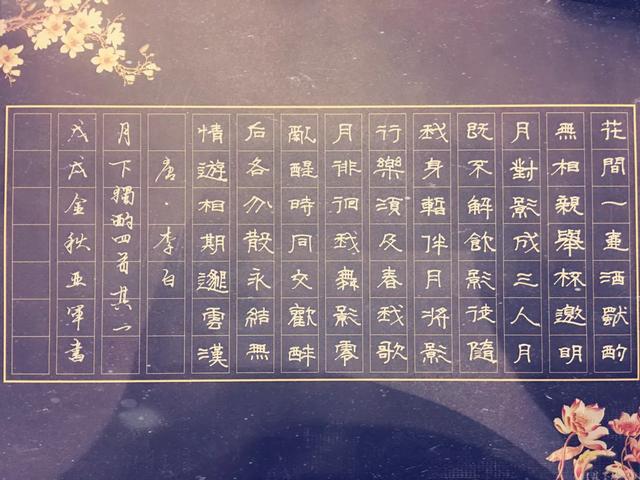 花間一壺酒獨酌
無相親舉杯邀明
月對影成三人月
既不解飲影徒隨
我身暫伴月將影
行樂須及春我歌
月徘徊我舞影零
亂醒時同交歡醉
后各分散永結無
情遊相期邈雲漢
唐·李白
月下獨酌四首其一
戊戌金秋亚軍書